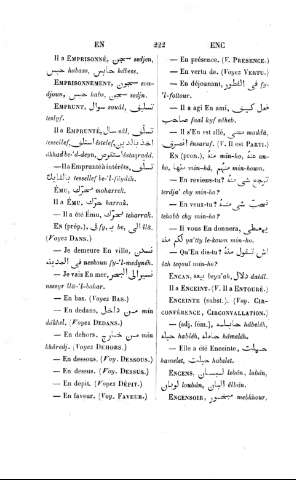 EN 222 ENC
Il a EMPRISONNÉ, سجن sedjen,
حبس habass, حابس hâbess.
EMPRISONNEMENT, سجون sou-
djoun, حبس habs, سجن sedjn.
EMPRUNT, سوال souâl, تسليف
teslyf.
Il a EMPRUNTÉ, سال sâl, تسلف
tessellef, استلف
ekhad be'd-deyn,
— Il a Emprunté à intérêts, تسلف
بالفايظ tessellef be'l-fâydh.
ÉMU, محرك moharrek.
Il a ÉMU, حرك harrak.
— Il a été Ému, تحرك teharrak.
EN (prép.), في fy, ب be, الى ilä.
(Voyez DANS.)
— Je demeure En ville, نسكن
في المدينه neskoun fy'l-medyneh.
— Je vais En mer, نسير الى البحر
nessyr ila'l-bahar.
— En bas. (Voyez BAS.)
— En dedans, من داخل min
dâkhel, (Voyez DEDANS.)
— En dehors, من خارج min
khâredj. (Voyez DEHORS.)
— En dessous. (Voy. DESSOUS.)
— En dessus. (Voy. DESSUS.)
— En dépit. (Voyez DÉPIT.)
— En faveur. (Voy. FAVEUR.)
— En présence. (V. PRÉSENCE.)
— En vertu de. (Voyez VERTU.)
— En déjeunant, في الفطور fy-
'l-fottour.
— Il a agi En ami, فعل كيف
صاحب faal kyf sâheb.
— Il s'En est allé, مشى mechä,
انصرف ensaraf. (V. Il est PARTI.)
EN (pron.), منه min-ho, عنه an-
ho, منها min-hâ, منهم min-houm.
— En reviens-tu? ترجع شي منه
terdja' chy min-ho?
— En veux-tu? تحب شي منه
tehabb chy min-ho?
— Il vous En donnera, يعطي
لكم منه ya'ty le-koum min-ho.
— Qu'En dis-tu? اش تقول منه
ech teqoul min-ho?
ENCAN, بيع beya'ah, دلال dalâl.
Il a ENCEINT. (V. Il a ENTOURÉ.)
ENCEINTE (subst.). (Voy. CIR-
CONFÉRENCE, CIRCONVALLATION.)
— (adj. fém.), حابله hâbeleh,
حبله hableh, حامله hâmeleh.
— Elle a été Enceinte, حملت
hamelet, حبلت habalet.
ENCENS, لبان lebân, lubân,
لوبان loubân, البان êlbân.
ENCENSOIR, مبخور mebkhour.